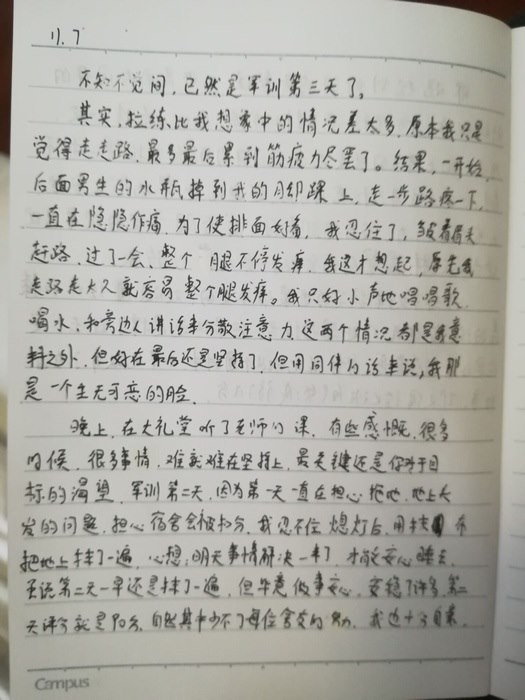 11.7
不知不觉间,已然是军训第三天了。
其实,拉练比我想象中的情况差太多,原本我只是
觉得走走路,最多最后累到筋疲力尽罢了。结果,一开始,
后面男生的水瓶掉到我的脚踝上,走一步路疼一下,
一直在隐隐作痛,为了使排面好看,我忍住了,皱着眉头
赶路,过了一会,整个腿不停发痒,我这才想起,原先我
走路走太久就容易整个腿发痒。我只好小声地唱唱歌,
喝水,和旁边人讲话来分散注意力,这两个情况都是我意
料之外,但好在最后还是坚持了,但用同伴的话来说,我那
是一个生无可恋的脸.
晚上,在大礼堂听了老师的课,有些感慨,很多
时候,很多事情,难就难在坚持上,最关键还是你对于目
标的渴望,军训第二天,因为第一天一直在担心拖地,地上头
发的问题,担心宿舍会被扣分,我忍不住熄灯后,用抹布
把地上抹了一遍,心想:明天事情解决一半了,才敢安心睡去,
虽说第二天一早还是抹了一遍,但毕竟做事安心,安稳了许多,第二
天评分就是90分,自然其中少不了每位舍友的努力,我也十分自豪.
Campus